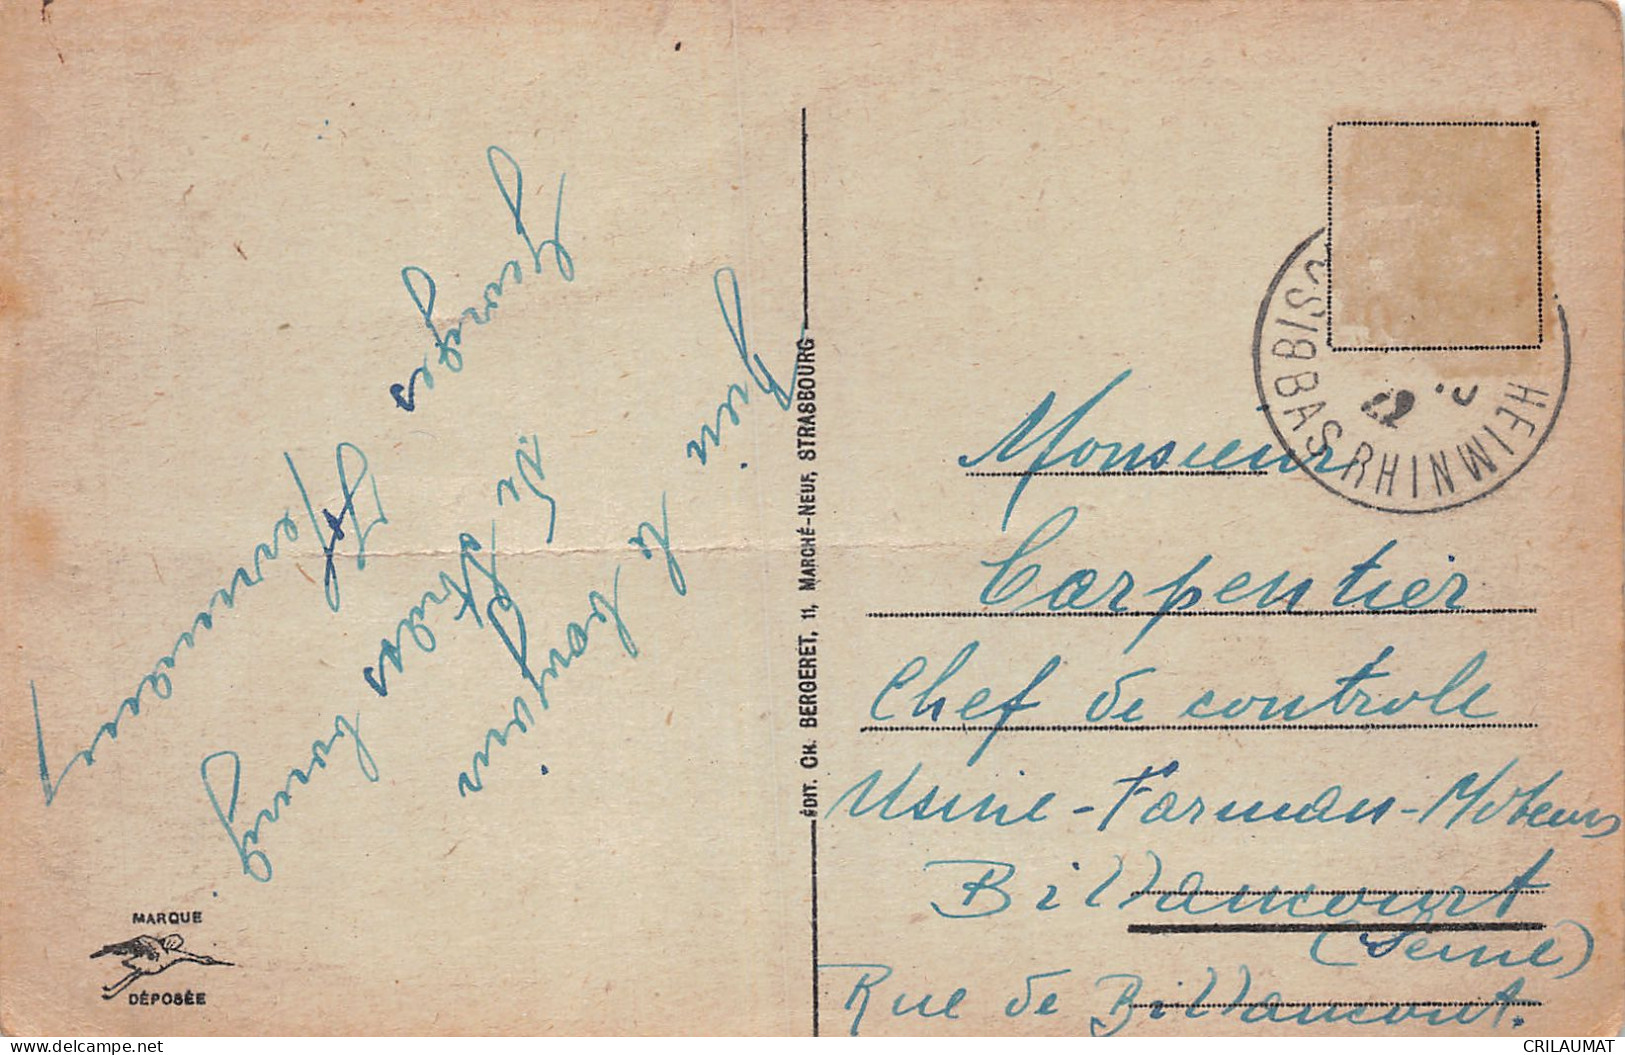 Bien
le bonjour
de
Strasbourg
Georges
MARQUE
DÉPOSÉE
ÉDIT. CH. BERGERET, 11, MARCHÉ-NEUF, STRASBOURG
BISC HEIM
BAS RHIN
Monsieur
Carpentier
Chef de controle
Usine-Farman-Moteurs
Billancourt
(Seine)
Rue de Billancourt.
CRILAUMAT